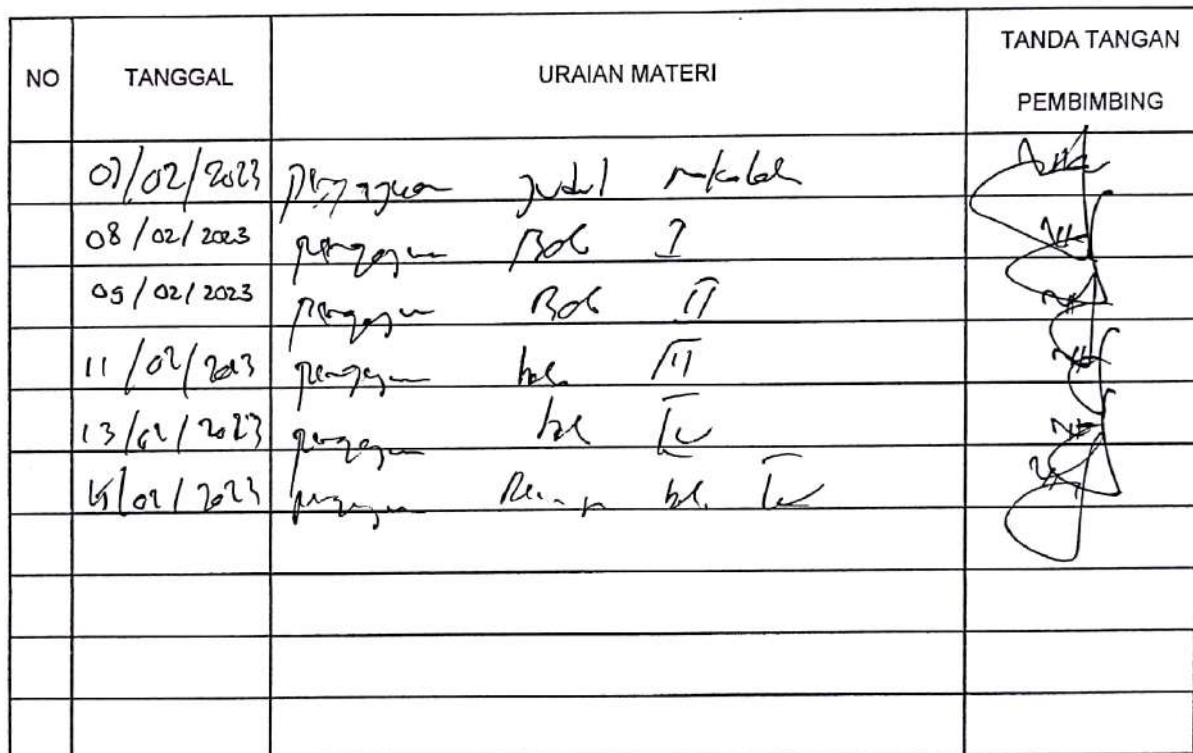 NO TANGGAL URAIAN MATERI TANDA TANGAN PEMBIMBING
07/02/2023 pengajuan judul makalah
08/02/2023 pengajuan Bab I
09/02/2023 pengajuan Bab II
11/02/2023 pengajuan bab III
13/02/2023 pengajuan bab IV
15/02/2023 pengajuan bab IV